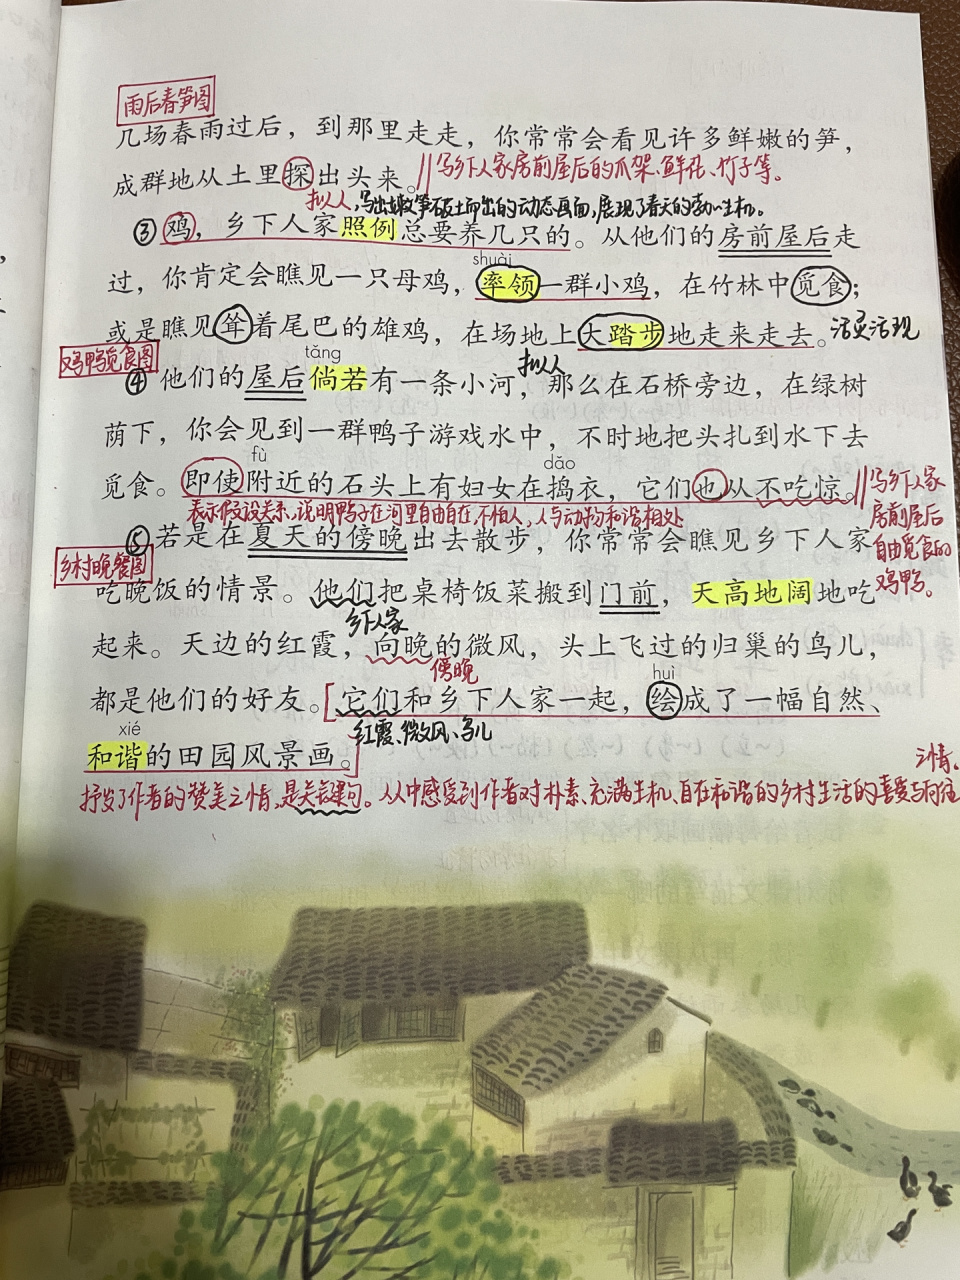 雨后春笋图
几场春雨过后，到那里走走，你常常会看见许多鲜嫩的笋，
成群地从土里探出头来。
写乡下人家房前屋后的瓜架、鲜花、竹子等。
拟人，写出嫩笋破土而出的动态画面，展现了春天的勃勃生机。
③鸡，乡下人家照例总要养几只的。从他们的房前屋后走
shuài
过，你肯定会瞧见一只母鸡，率领一群小鸡，在竹林中觅食；
或是瞧见耸着尾巴的雄鸡，在场地上大踏步地走来走去。活灵活现
鸡鸭觅食图
tǎng
拟人
④他们的屋后倘若有一条小河，那么在石桥旁边，在绿树
荫下，你会见到一群鸭子游戏水中，不时地把头扎到水下去
fù dǎo
觅食。即使附近的石头上有妇女在捣衣，它们也从不吃惊。
写乡下人家
房前屋后
自由觅食的
鸡鸭。
表示假设关系，说明鸭子在河里自由自在，不怕人，人与动物和谐相处
⑤若是在夏天的傍晚出去散步，你常常会瞧见乡下人家
乡村晚餐图
吃晚饭的情景。他们把桌椅饭菜搬到门前，天高地阔地吃
乡下人家
起来。天边的红霞，向晚的微风，头上飞过的归巢的鸟儿，
傍晚
huì
都是他们的好友。它们和乡下人家一起，绘成了一幅自然、
红霞、微风、鸟儿
xié
和谐的田园风景画。
抒发了作者的赞美之情，是关键句。从中感受到作者对朴素、充满生机、自在和谐的乡村生活的喜爱与向往
之情。